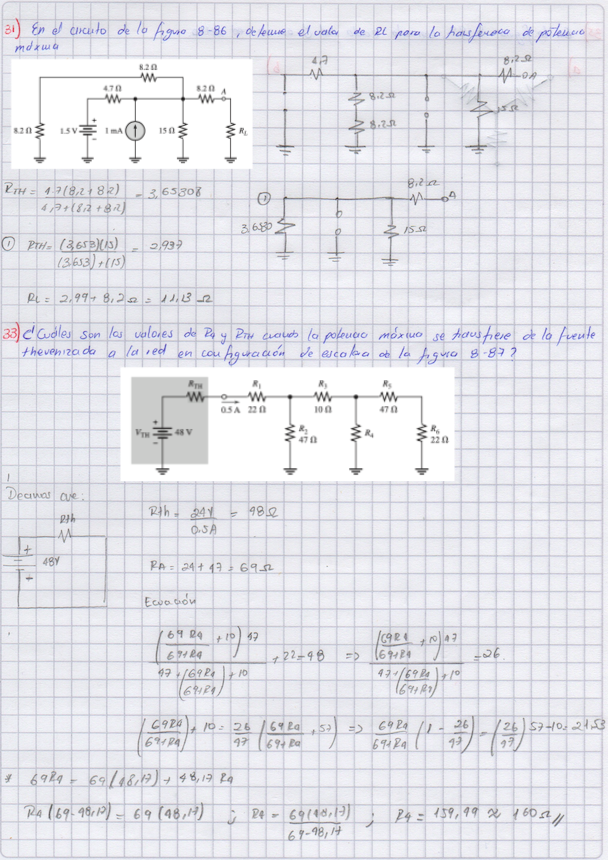 31) En el circuito de la figura 8-86, determine el valor de RL para la transferencia de potencia
máxima
8.2 Ω
4.7 Ω
8.2 Ω
A
8.2 Ω
1.5 V
1 mA
15 Ω
RL
4,7
8,2Ω
8,2Ω
8,2Ω
A
15Ω
RTH = 4.7(8,2+8,2) = 3,65308
4,7+(8,2+8,2)
1
8,2Ω
A
3,680
15Ω
1 RTH = (3,653)(15) = 2,937
(3,653)+(15)
RL = 2,99+8,2Ω = 11,13 Ω
33) ¿Cuáles son los valores de R4 y RTH cuando la potencia máxima se transfiere de la fuente
thevenizada a la red en configuración de escalera de la figura 8-87?
RTH
R1
R3
R5
0.5 A
22 Ω
10 Ω
47 Ω
VTH
48 V
R2
47 Ω
R4
R6
22 Ω
Rth
48V
Rth = 24V = 48Ω
0.5A
RA = 24+47 = 69Ω
Ecuación
(69R4/69+R4 + 10) 47 / 47+(69R4/69+R4)+10 + 22 = 48 => (69R4/69+R4 + 10) 47 / 47+(69R4/69+R4)+10 = 26
(69R4/69+R4) + 10 = 26/47 (69R4/69+R4 + 57) => 69R4/69+R4 (1 - 26/47) = (26/47) 57-10 = 21.53
69R4 = 69(48,17) + 48,17 R4
R4(69-48,17) = 69(48,17) ; R4 = 69(48,17)/69-48,17 ; R4 = 159,49 ≈ 160Ω //